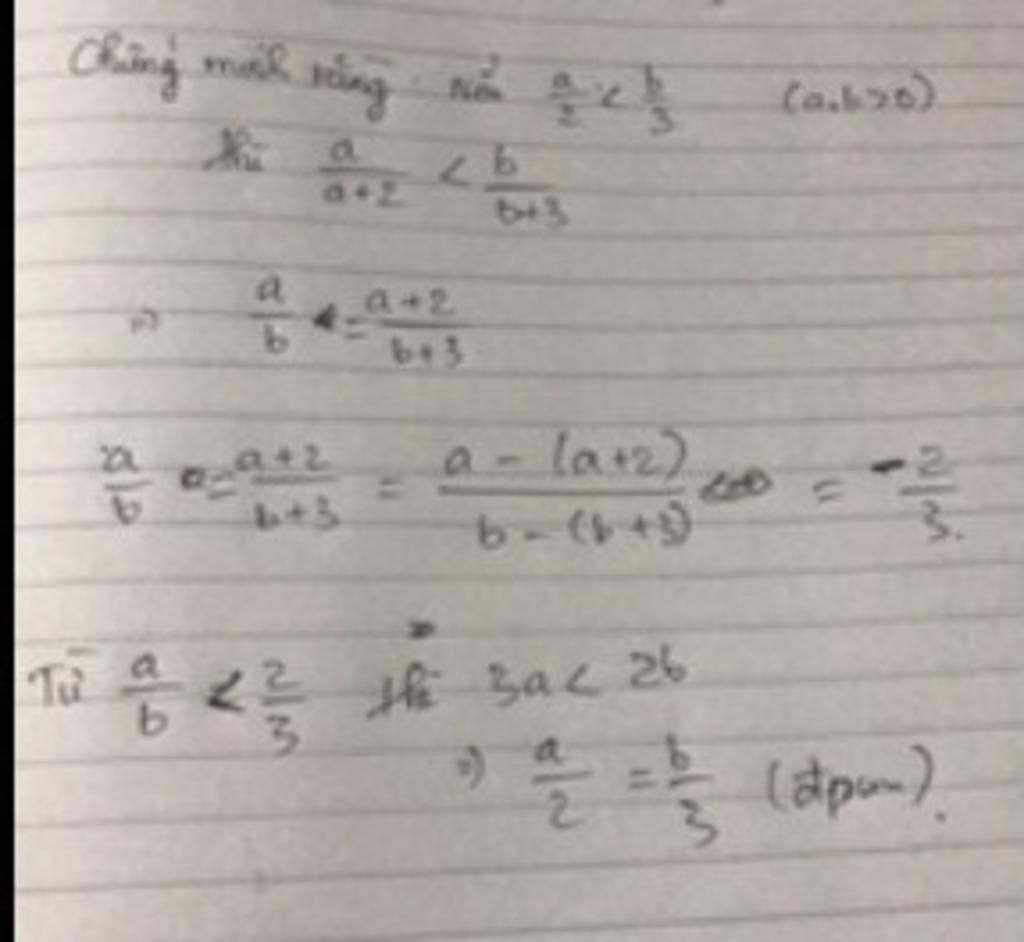 Chứng minh rằng nếu a/2 < b/3 (a,b>0)
thì a/(a+2) < b/(b+3)
=> a/b = (a+2)/(b+3)
a/b = (a+2)/(b+3) = (a - (a+2))/(b - (b+3)) = -2/3.
Từ a/b < 2/3 thì 3a < 2b
=> a/2 = b/3 (đpcm).